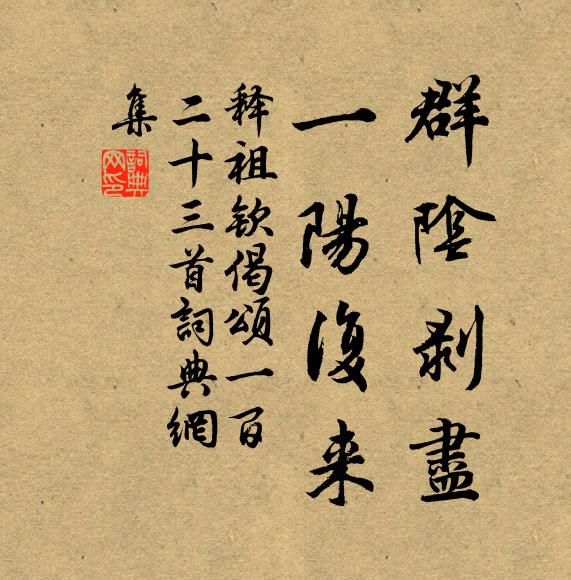 群陰剥盡
一陽復来
释祖欽偈頌一百
二十三首詞典網
集
詞典網印